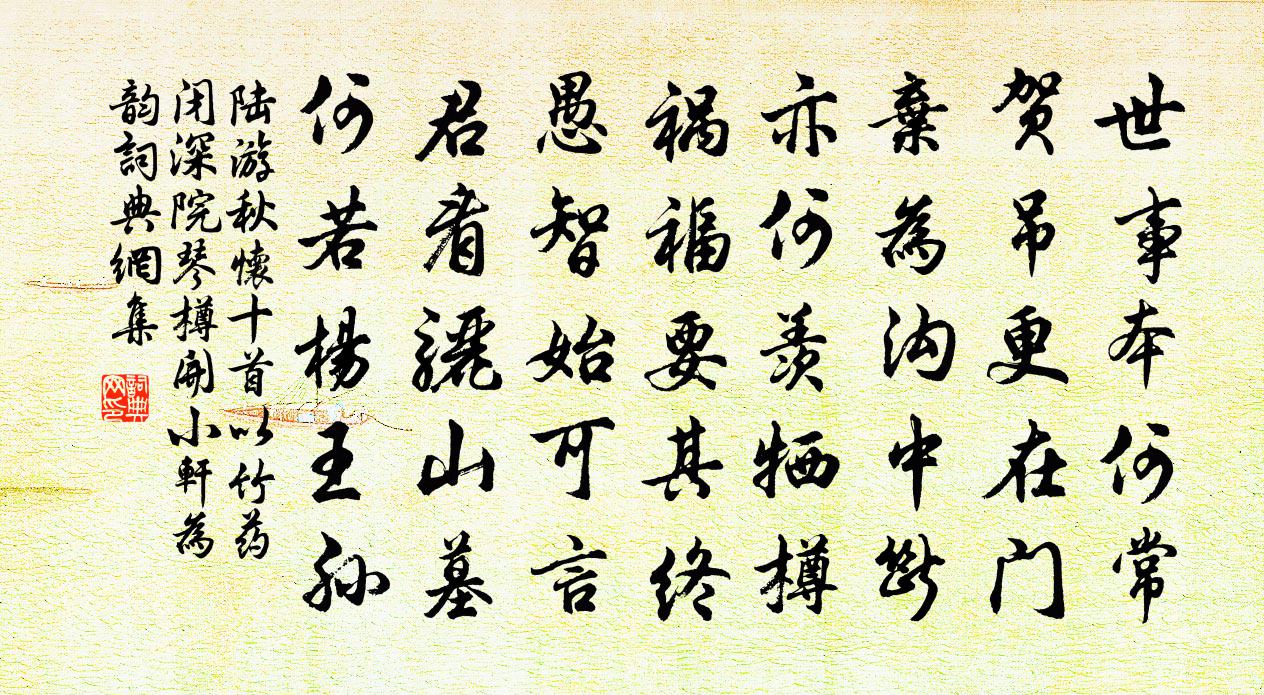 世事本何常
贺吊更在门
棄為沟中断
亦何羡牺樽
祸福要其终
愚智始可言
君看骊山墓
何若杨王孙
陆游秋懷十首以竹药
闭深院琴樽開小軒為
韵詞典網集
詞典
网印